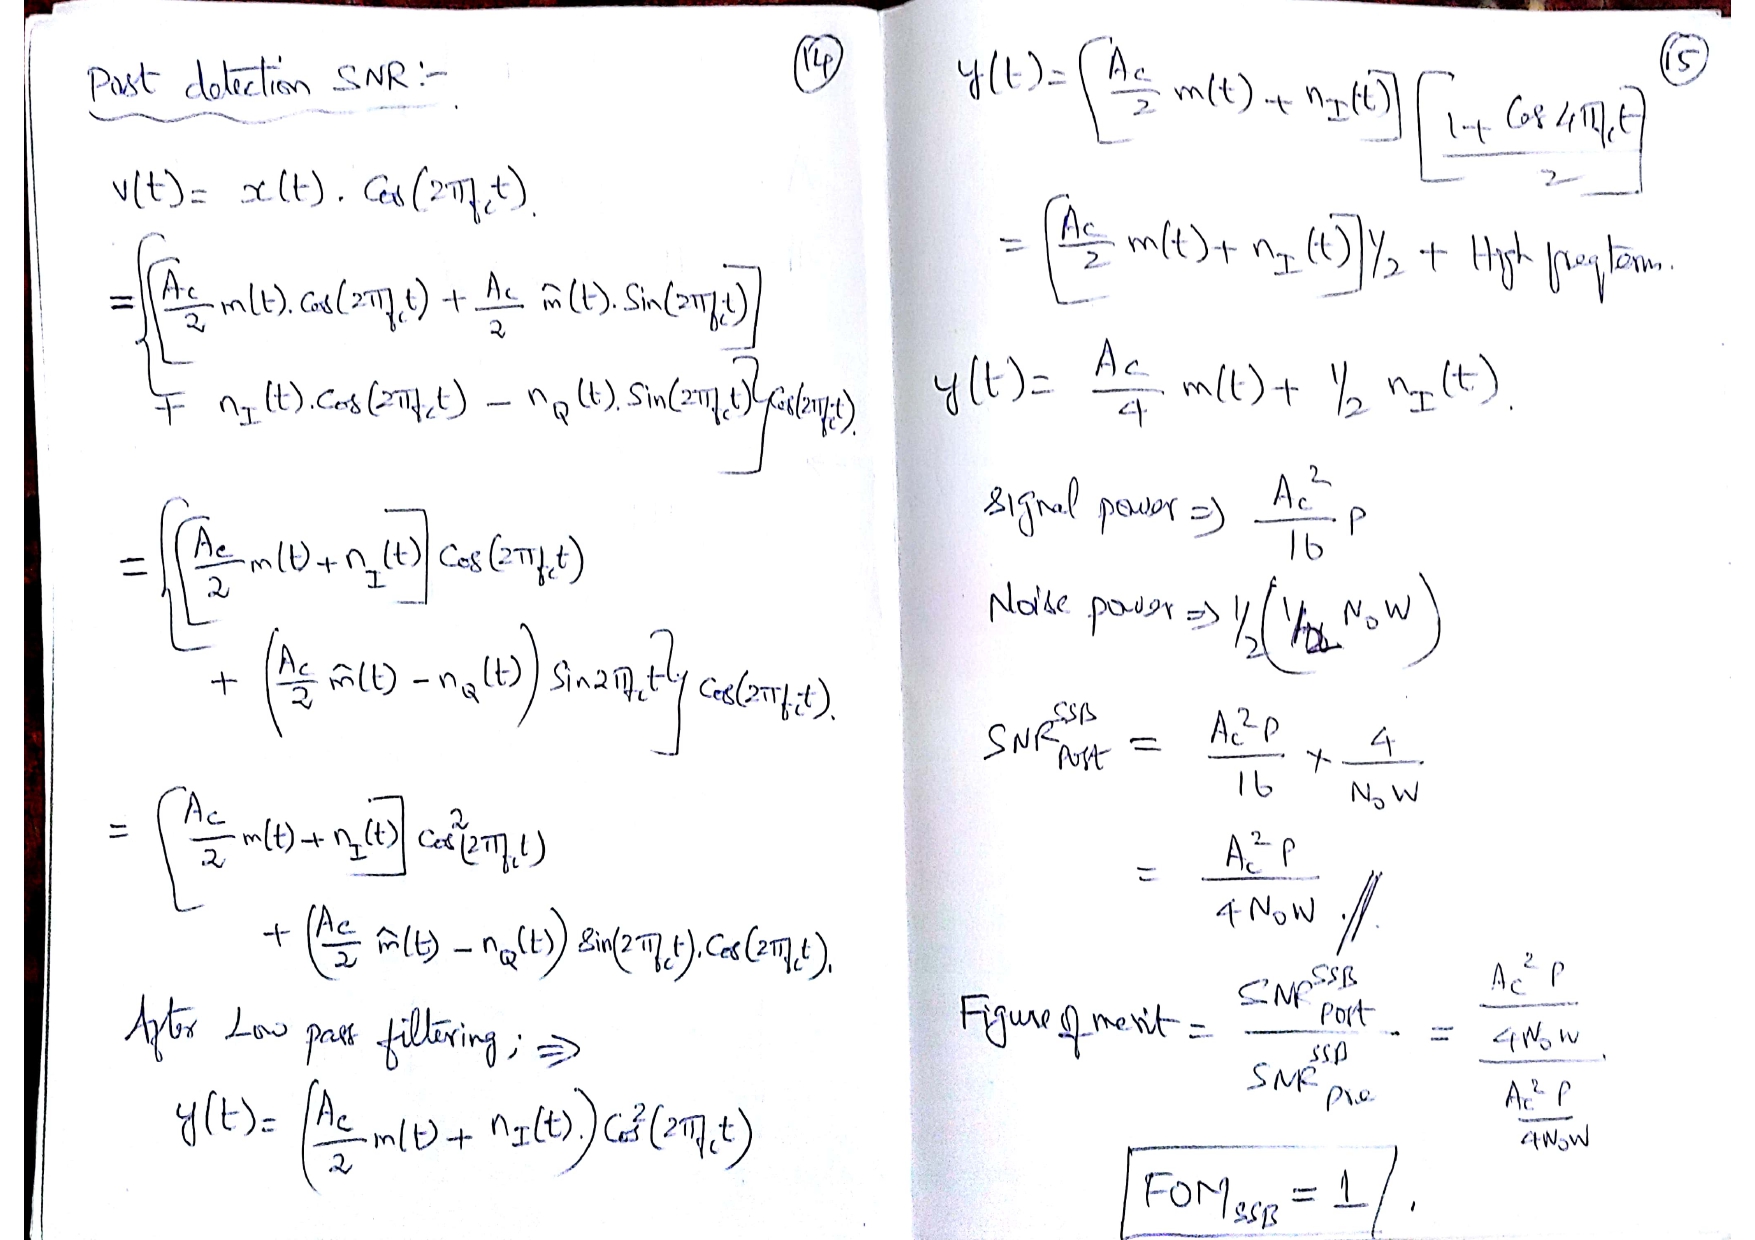 14
Post detection SNR :-
v(t) = x(t). Cos(2πf_c t).
= {[A_c/2 m(t). Cos(2πf_c t) + A_c/2 m̂(t). Sin(2πf_c t)]
+ n_I(t). Cos(2πf_c t) – n_Q(t). Sin(2πf_c t)]} Cos(2πf_c t).
= {[A_c/2 m(t) + n_I(t)] Cos(2πf_c t)
+ (A_c/2 m̂(t) – n_Q(t)) Sin2πf_c t} Cos(2πf_c t).
= [A_c/2 m(t) + n_I(t)] Cos²(2πf_c t)
+ (A_c/2 m̂(t) – n_Q(t)) Sin(2πf_c t). Cos(2πf_c t).
After Low pass filtering; ⇒
y(t) = (A_c/2 m(t) + n_I(t).) Cos²(2πf_c t)
15
y(t) = [A_c/2 m(t) + n_I(t)] [(1 + Cos 4πf_c t)/2]
= [A_c/2 m(t) + n_I(t)] 1/2 + High freq term.
y(t) = A_c/4 m(t) + 1/2 n_I(t).
Signal power ⇒ A_c²/16 P
Noise power ⇒ 1/2 (1/2 N_0 W)
SNR^SSB_Post = A_c² P/16 × 4/N_0 W
= A_c² P/4 N_0 W //.
Figure of merit = SNR^SSB_Post / SNR^SSB_Pre = (A_c² P/4 N_0 W) / (A_c² P/4 N_0 W).
FOM_SSB = 1 /.